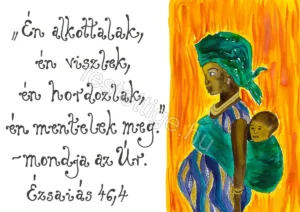 „Én alkottalak,
én viszlek,
én hordozlak,
én mentelek meg."
~mondja az Úr.
Ézsaiás 46,4